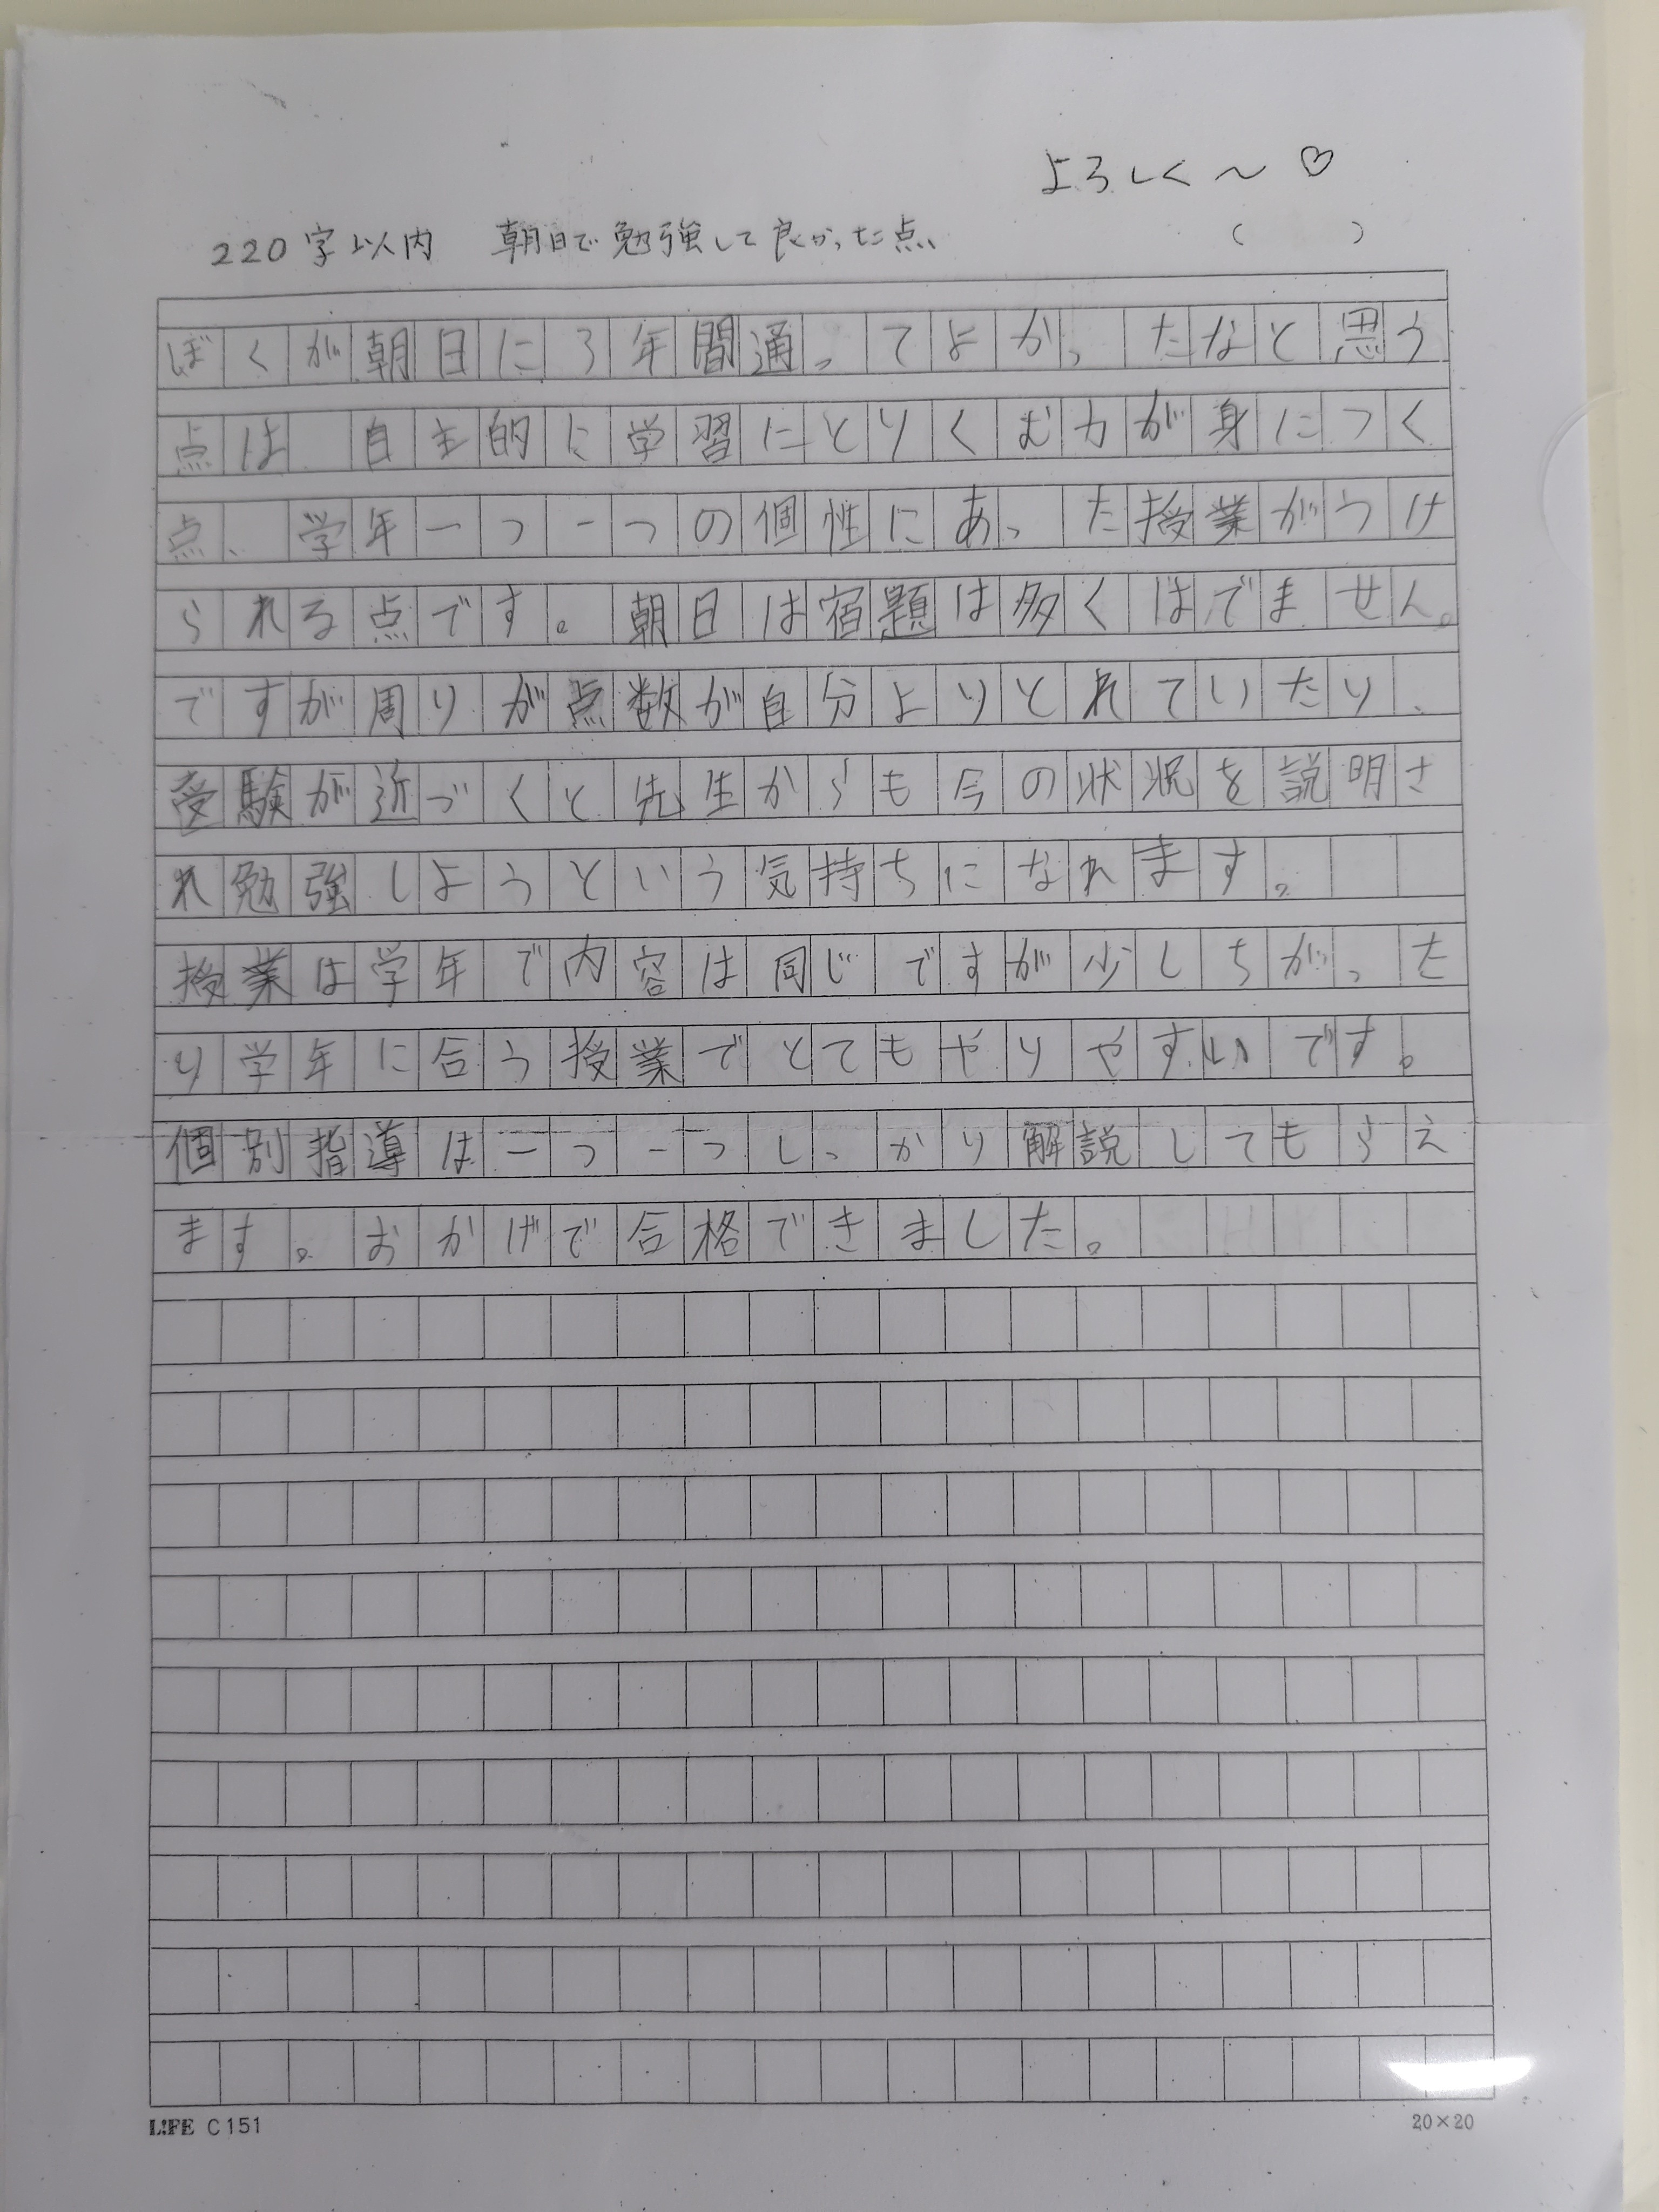 よろしく〜♡
220字以内 朝日で勉強して良かった点 ( )
ぼくが朝日に3年間通ってよかったなと思う
点は 自主的に学習にとりくむ力が身につく
点、学年一つ一つの個性にあった授業がうけ
られる点です。朝日は宿題は多くはでません。
ですが周りが点数が自分よりとれていたり、
受験が近づくと先生からも今の状況を説明さ
れ勉強しようという気持ちになれます。
授業は学年で内容は同じですが少しちがった
り学年に合う授業でとてもやりやすいです。
個別指導は一つ一つしっかり解説してもらえ
ます。おかげで合格できました。
LIFE C151
20×20